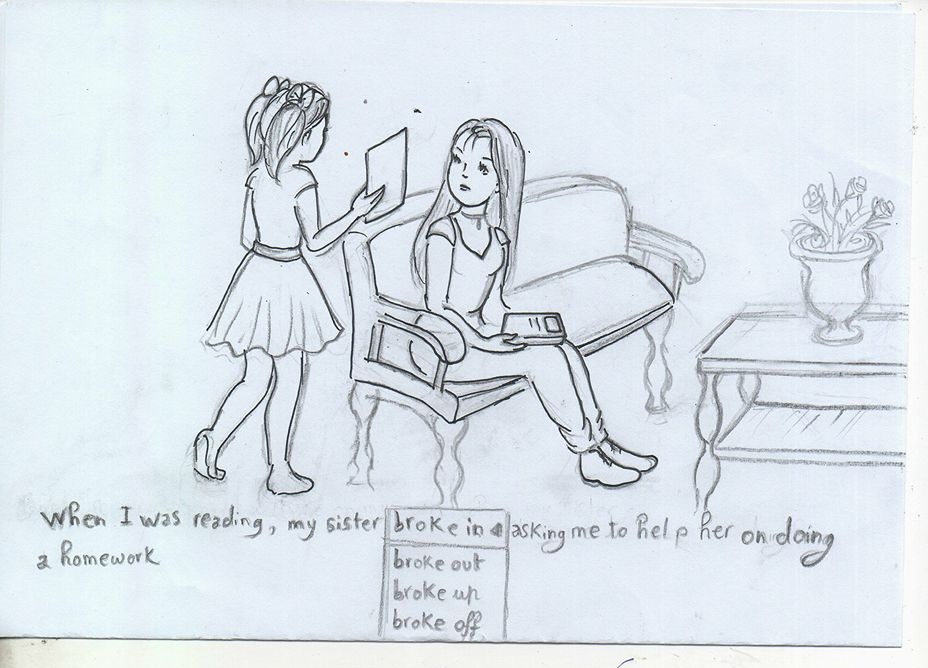 When I was reading, my sister broke in asking me to help her on doing
a homework
broke out
broke up
broke off